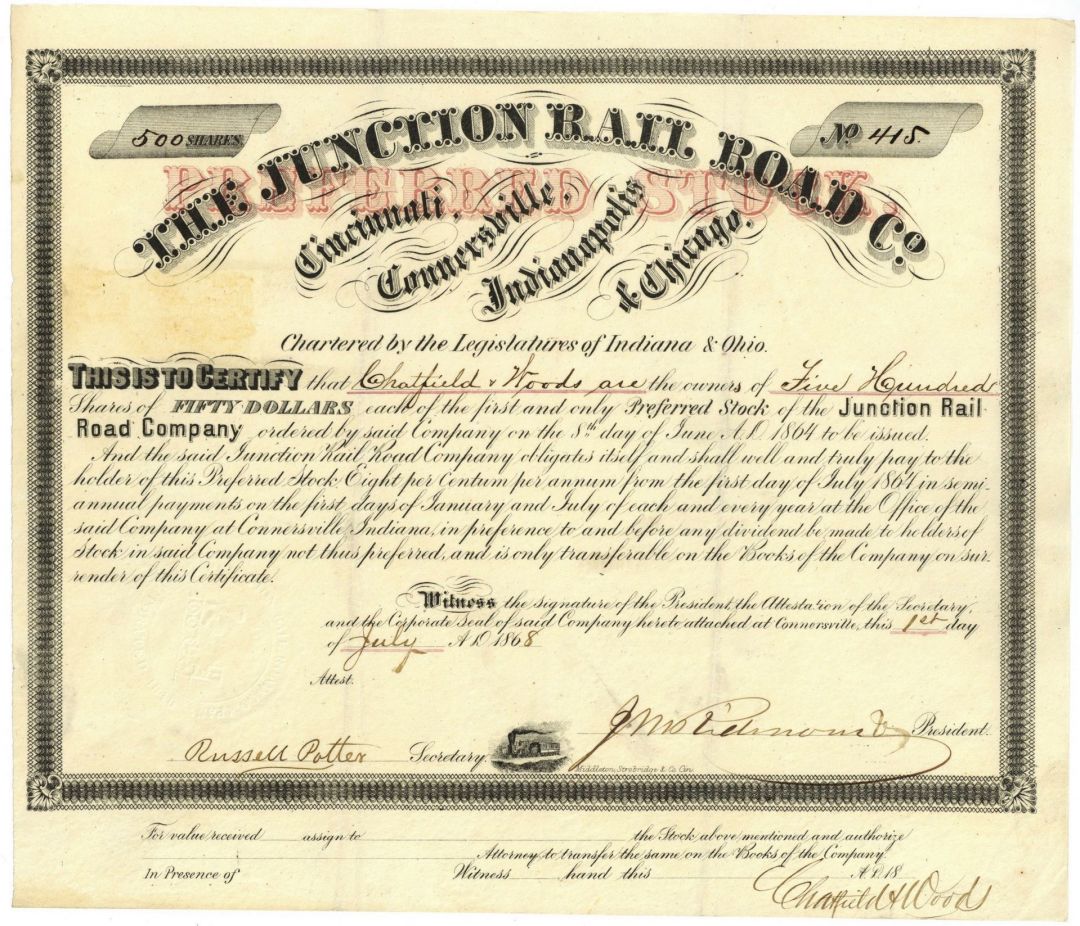 500 SHARES.
No 415.
THE JUNCTION RAIL ROAD Co.
PREFERRED STOCK.
Cincinnati,
Connersville,
Indianapolis
& Chicago.
Chartered by the Legislatures of Indiana & Ohio.
THIS IS TO CERTIFY that Chatfield & Woods are the owners of Five Hundred
Shares of FIFTY DOLLARS each of the first and only Preferred Stock of the Junction Rail
Road Company ordered by said Company on the 8th day of June A.D. 1864 to be issued.
And the said Junction Rail Road Company obligates itself and shall well and truly pay to the
holder of this Preferred Stock Eight per Centum per annum from the first day of July 1864 in semi-
annual payments on the first days of January and July of each and every year at the Office of the
said Company at Connersville Indiana, in preference to and before any dividend be made to holders of
Stock in said Company not thus preferred, and is only transferable on the Books of the Company on sur-
render of this Certificate.
Witness the signature of the President, the Attestation of the Secretary,
and the Corporate Seal of said Company hereto attached at Connersville, this 1st day
of July A.D. 1868
Attest.
Russell Potter Secretary.
President.
Middleton, Strobridge & Co. Cin.
For value received assign to the Stock above mentioned and authorize
Attorney to transfer the same on the Books of the Company.
In Presence of Witness hand this A.D. 18
Chatfield & Woods